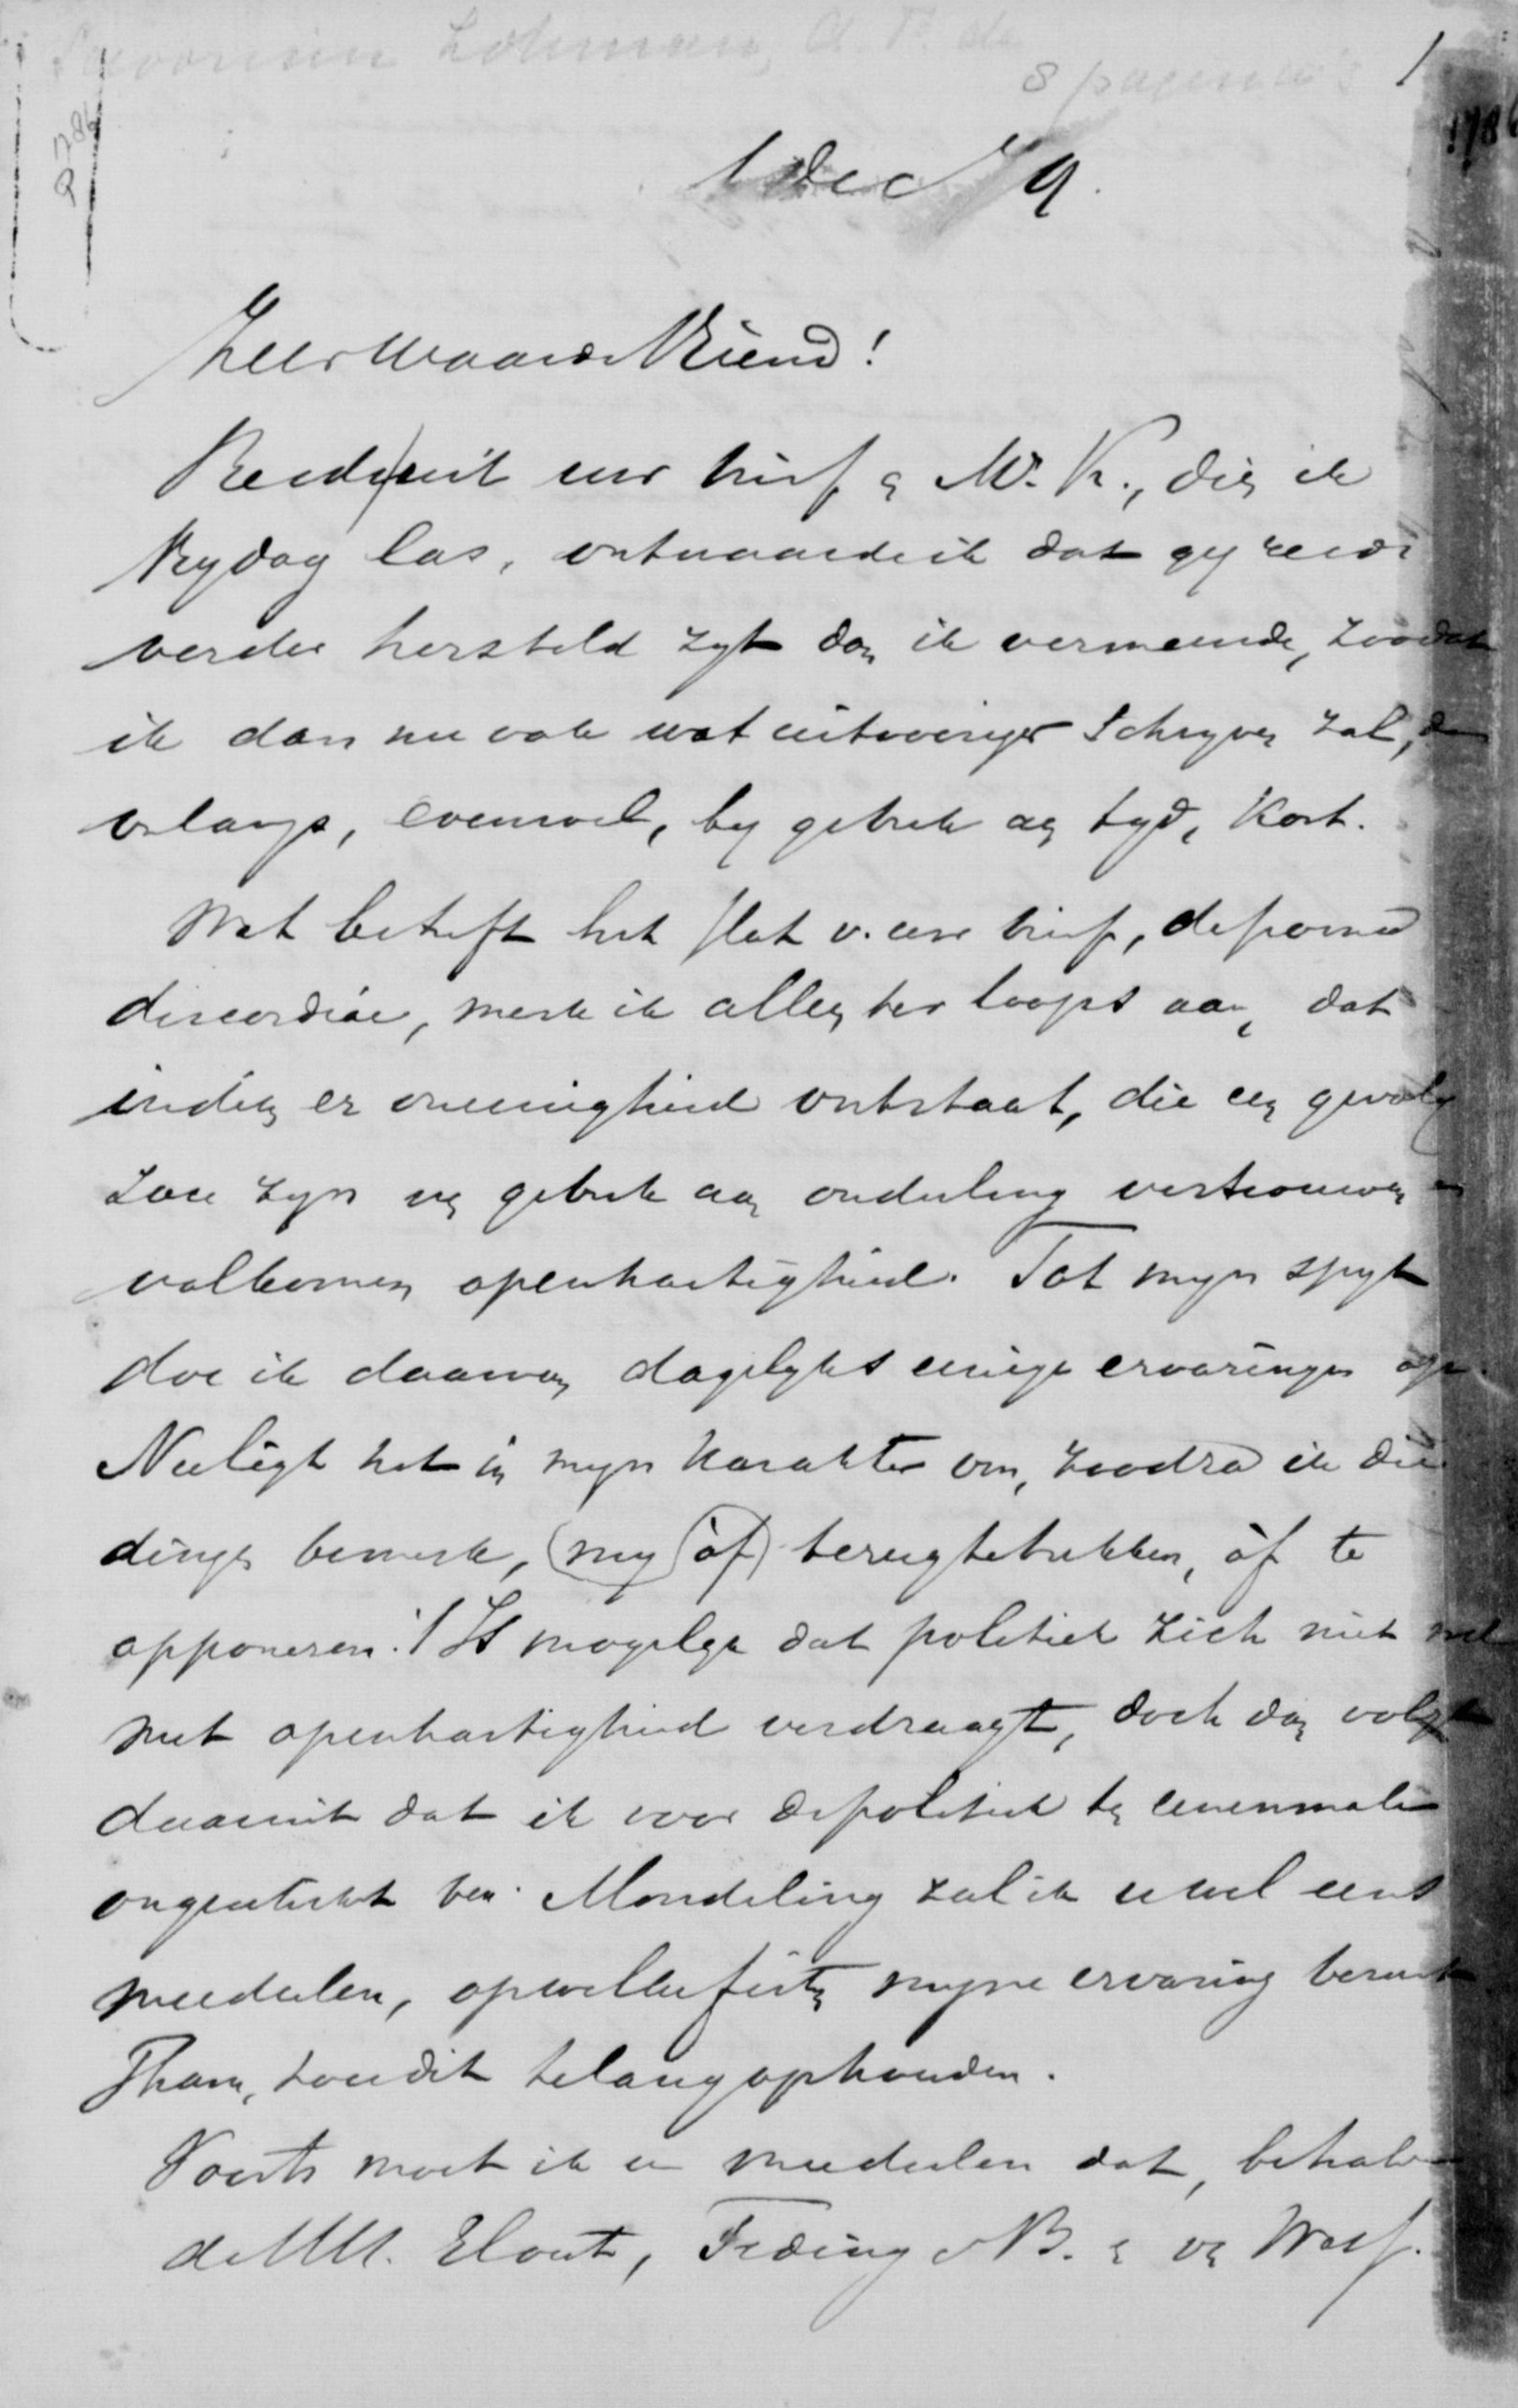 Savornin Lohman, A. F. de
8 pagina's
1
P 1786
1 Dec 79.
Zeer Waarde Vriend!
Reeds uit uw brief a Mr. K., dien ik
Vrydag las, ontwaarde ik dat gy reeds
verder hersteld zyt dan ik vermeende, zoodat
ik dan nu ook wat uitvoeriger schryven zal, dan
onlangs, evenwel, by gebrek aan tyd, kort.
Wat betreft het slot v. uw brief, de pomme
discordiae, merk ik alleen ter loops aan, dat
indien er oneenigheid ontstaat, die een gevolg
zou zyn van gebrek aan onderling vertrouwen en
volkomen openhartigheid. Tot myn spyt
doe ik daarvan dagelyks eenige ervaringen op.
Nu ligt het in myn karakter om, zoodra ik die
dingen bemerk, my òf terugtetrekken, òf te
opponeren. 't Is mogelyk dat politiek zich niet wel
met openhartigheid verdraagt, doch dan volgt
daaruit dat ik voor de politiek ten eenenmale
ongeschikt ben. Mondeling zal ik u wel eens
meedeelen, op welke feiten myne ervaring berust
Thans, zou dit te lang ophouden.
Voorts moet ik u meedeelen dat, behalve
de MM. Elout, Teding v B. & vn Wass.